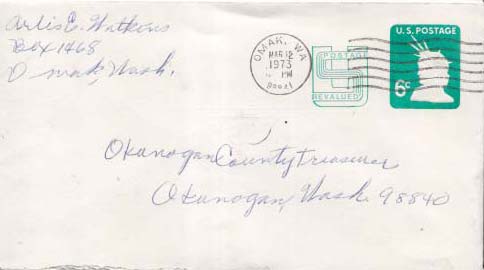 Arlis E. Watkins
Box 1468
Omak, Wash.
OMAK, WA
MAR 12
1973
PM
98841
POSTAGE
REVALUED
U.S. POSTAGE
6¢
Okanogan County Treasurer
Okanogan, Wash 98840